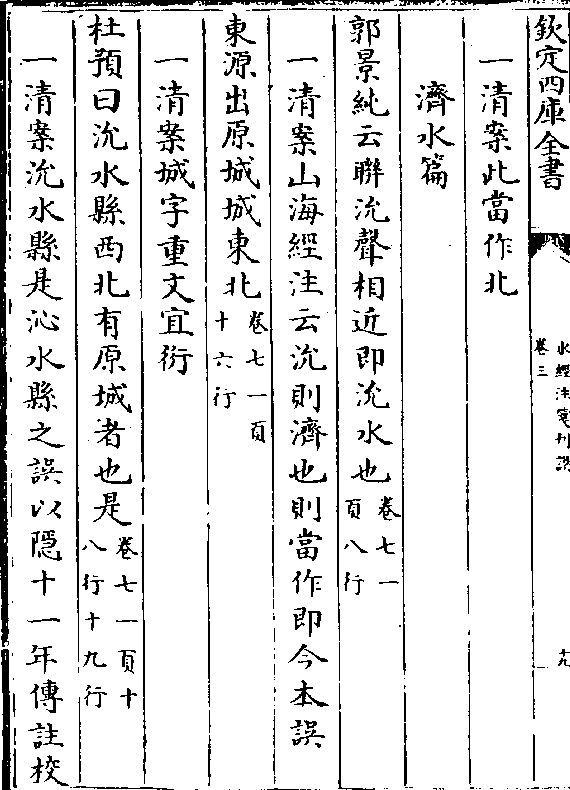 欽定四庫全書
水經注箋刊誤
卷三
十九
一清案此當作北
濟水篇
郭景純云聯沇聲相近即沇水也卷七一頁八行
一清案山海經注云沇則濟也則當作即今本誤
東源出原城城東北卷七一頁十六行
一清案城字重文宜衍
杜預曰沇水縣西北有原城者也是卷七一頁十八行十九行
一清案沇水縣是沁水縣之誤以隠十一年傳註校